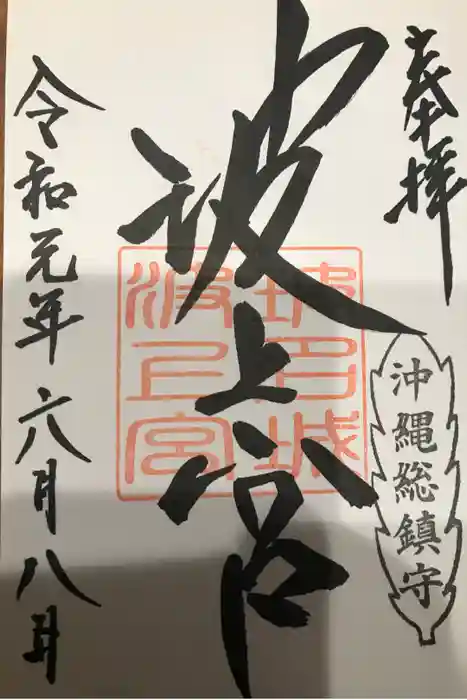 奉拝
沖縄総鎮守
波上宮
琉球城
波上宮
令和元年六月八日